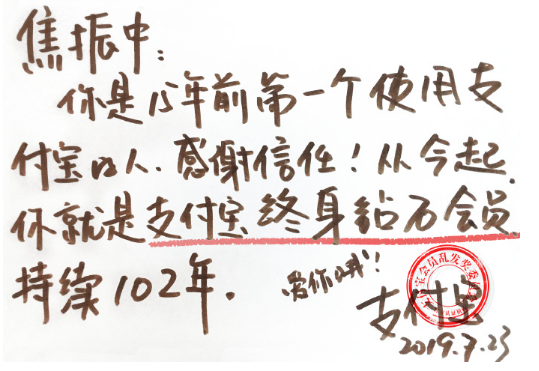 焦振中:
你是15年前第一个使用支
付宝的人.感谢信任!从今起,
你就是支付宝终身钻石会员.
持续102年.
爱你哦!
支付宝
宝会员乱发奖委
2019.7.23